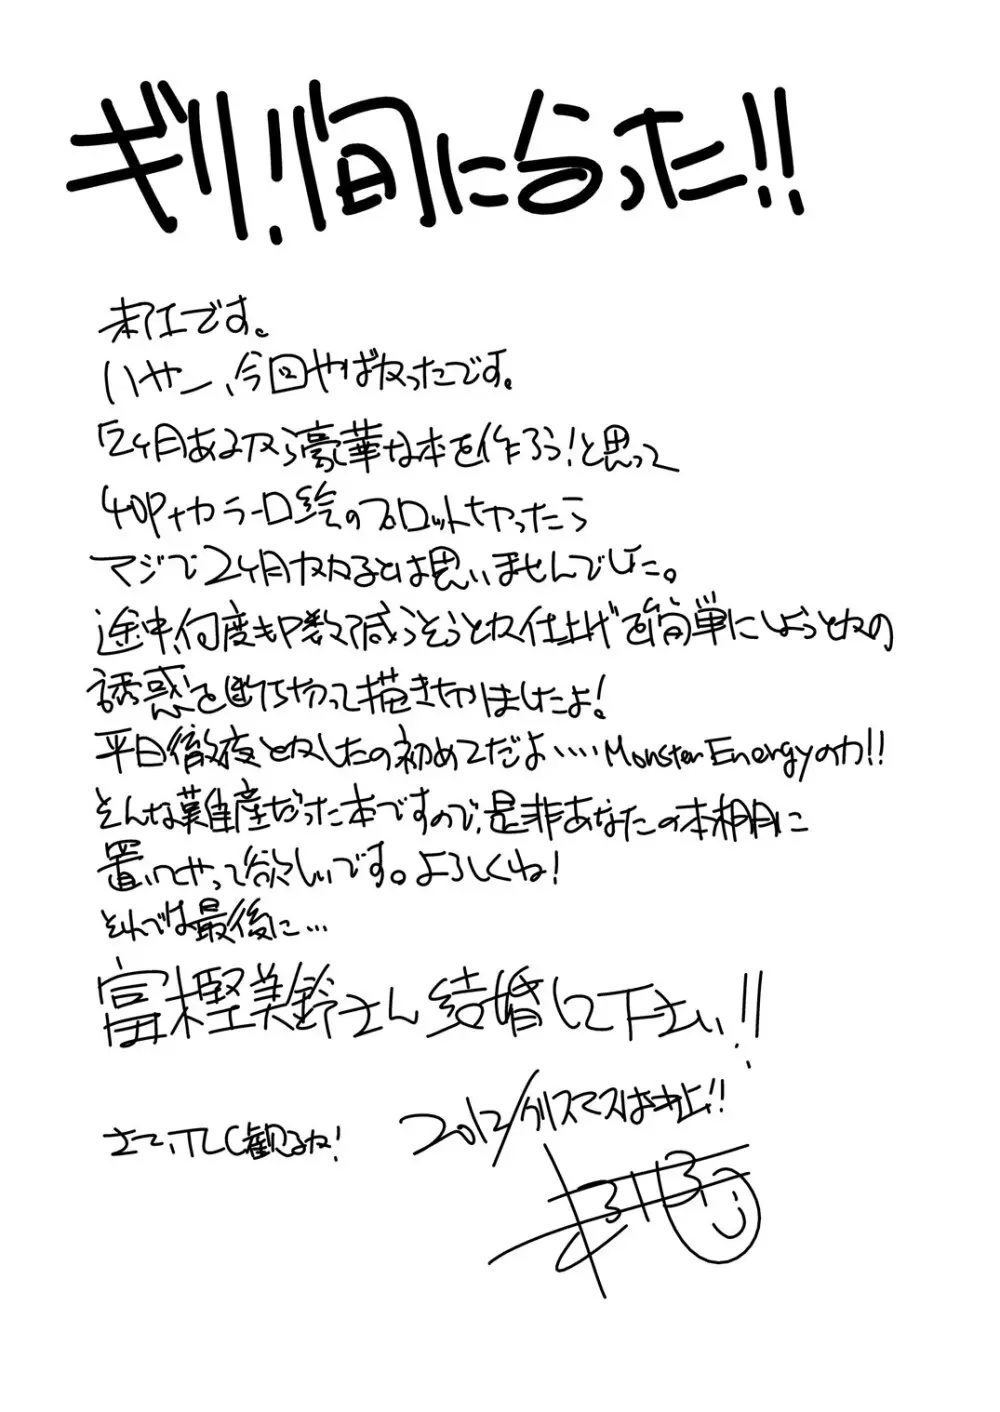 ギリ!間に合った!!
です。
いやー、今回やばかったです。
「2ヶ月あるから豪華な本を作ろう!と思って
40P+カラー口絵のプロットをやったら
マジで2ヶ月かかるとは思いませんでした。
途中、何度もP数減らそうとか仕上げを簡単にしようとかの
誘惑を断ち切って描ききりましたよ!
平日徹夜とかしたの初めてだよ……Monster Energyの力!!
そんな難産だった本ですので、是非あなたの本棚に
置いてやって欲しいです。よろしくね!
それでは最後に…
富樫美鈴さん結婚して下さい!!
さて、TLC観るね!
2012/クリスマスは中止!!